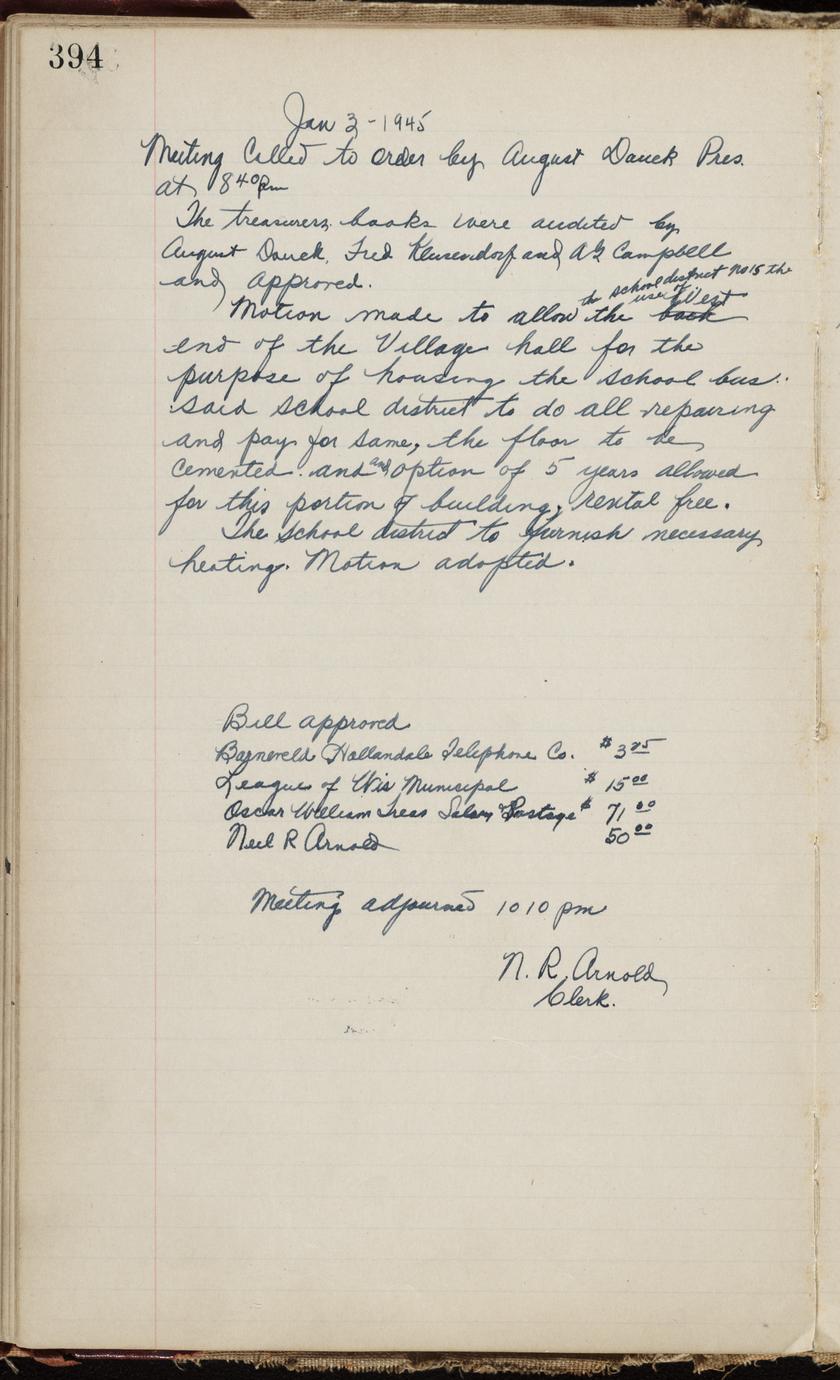 394
Jan 3 - 1945
Meeting Called to order by August Dauck Pres.
at 8 40 pm
The treasurers books were audited by
August Dauck, Fred Klusendorf and A G Campbell
and approved.
the school district No 15 the
use of West
Motion made to allow the back
end of the Village hall for the
purpose of housing the school bus.
Said school district to do all repairing
and pay for same, the floor to be
cemented. and and option of 5 years allowed
for this portion of building, rental free.
The school district to furnish necessary
heating. Motion adopted.
Bill approved
Barneveld Hollandale Telephone Co. $ 3 25
League of Wis Municipal $ 15 00
Oscar William Treas Salary Postage $ 71 00
Neil R Arnold 50 00
Meeting adjourned 10 10 pm
N. R. Arnold
Clerk.